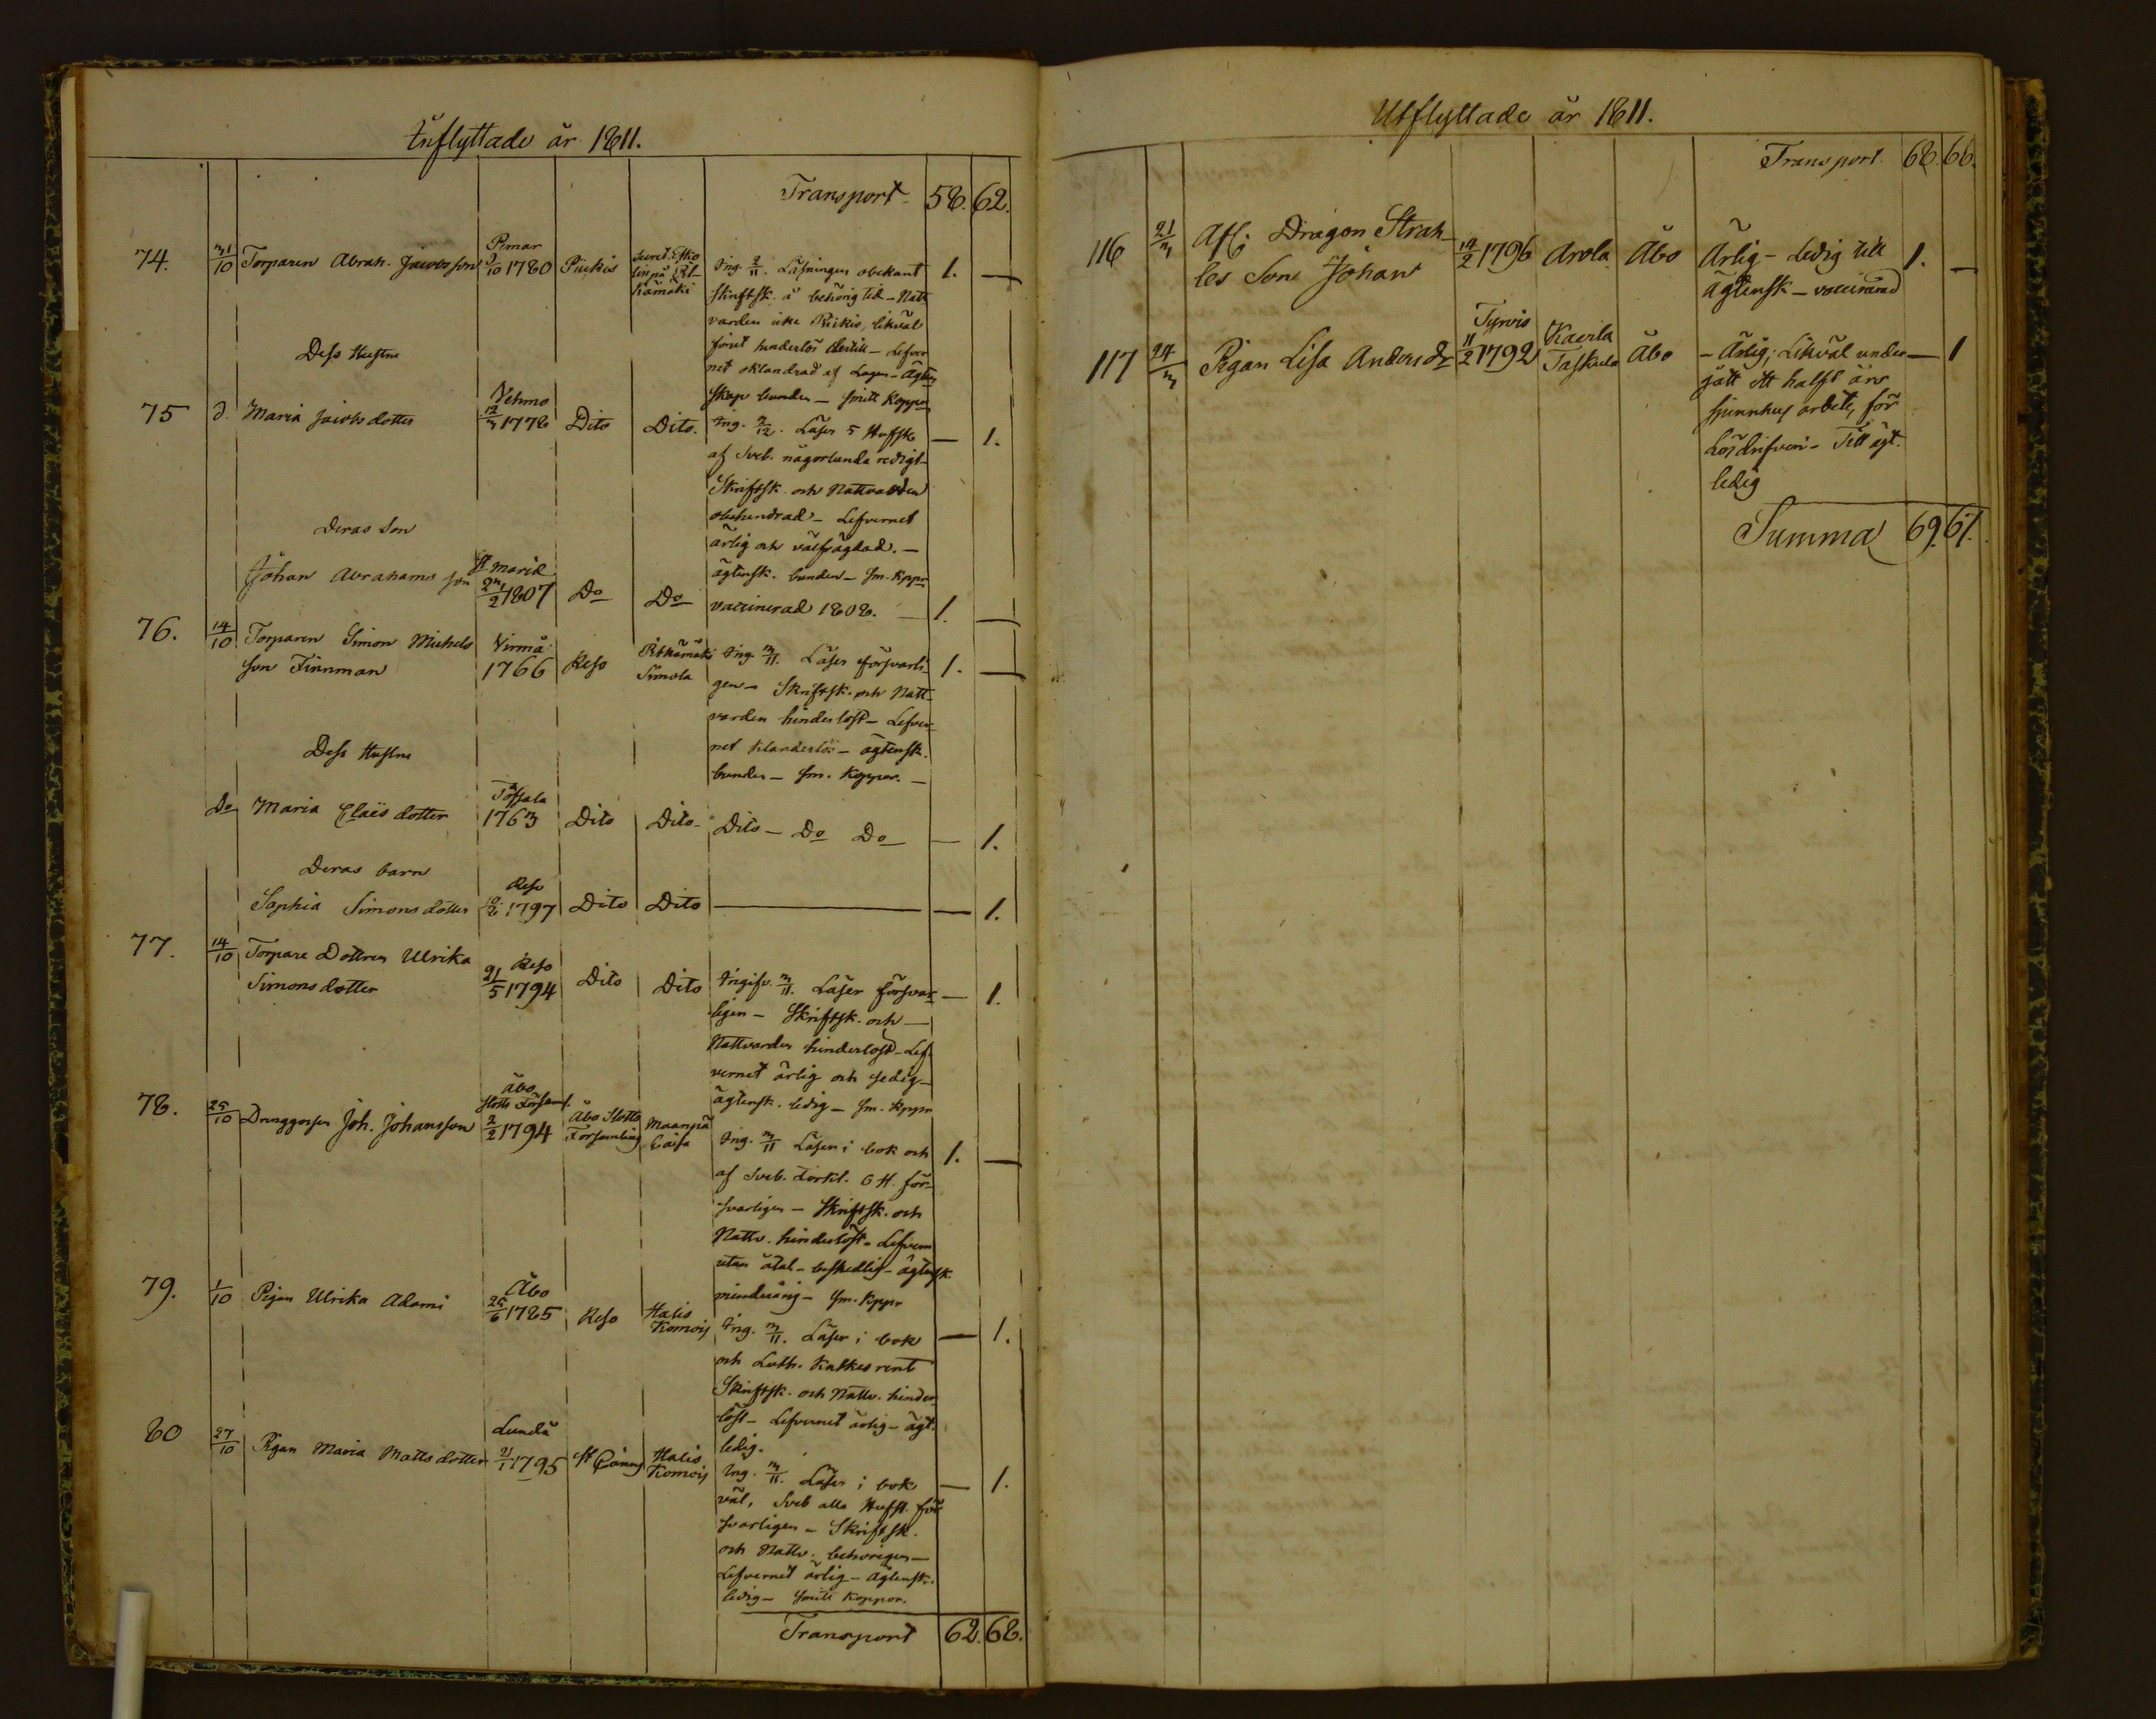 Inflyttade år 1811.
Transport 58. 62.
74. 31/10 Torparen Abrah. Jacobsson Pemar 3/10 1780 Piickis Ing. 2/11. Läsningen obekant 1. —
Skriftsk. å behörig tid – Natt
varden icke Piickis, likväl
hinderlös dertill – Lefver
net oklandrad af Lagen – Ägten
skap bunden – smitt koppor
Dess Hustru
75 d. Maria Jacobsdotter Vehmo 12/3 1778 Dito Dito. Ing. 2/12. Läser 5 Hufst. — 1.
af Sveb. någorlunda redigt –
Skriftsk. och Nattvarden
obehindrad – Lefvernet
ärlig och välfrägdad. –
ägtensk. bunden – sm. kppr
Deras Son
Johan Abrahamsson St Marie 23/2 1807 Do Do vaccinerad 1808. — 1. —
76. 14/10 Torparen Simon Michels Virmå Pitkämäki Ing. 3/11. Läser försvarli 1. —
son Finnman 1766 Reso Simola gen – Skriftsk. och Natt
varden hinderlöst – Lefver
net klanderlös – ägtensk.
bunden – sm. koppor. –
Dess Hustru
Do Maria Claësdotter Töfsala 1763 Dito Dito – Dito – Do Do — 1.
Deras barn
Sophia Simonsdotter Reso 1797 Dito Dito — — 1.
77. 14/10 Torpare Dottren Ulrika Reso
Simonsdotter 21/5 1794 Dito Dito Ingifv. 3/11. Läser försvar — 1.
ligen – Skriftsk. och –
Nattvarden hinderlöst – Lef
vernet ärlig och sedig –
ägtensk. ledig – sm. kppr
78. 25/10 Drenggossen Joh. Johansson Åbo Slotts Församl. 2/2 1794 Åbo Slotts Församling Maanpä Ing. 3/11 Läser i bok och 1. —
af Sveb. Förkl. 6 H. för
svarligen – Skriftsk. och
Nattv. hinderlöst – Lefvern
utan åtal – beskedlig – ägtensk.
minderårig – sm. kppr
79. 1/10 Pigan Ulrika Adami Åbo 25/6 1785 Reso Halis Komois Ing. 3/11. Läser i bok — 1.
och Luth. Katkes rent
Skriftsk. och Nattv. hinder
löst – Lefvernet ärlig – ägt.
ledig.
80 27/10 Pigan Maria Mattsdotter Lundå 21/1 1795 Halis Komois Ing. 3/11. Läser i bok — 1.
väl, Sveb alla Hufst. för
svarligen – Skriftsk.
och Nattv. behörigen –
Lefvernet ärlig – Ägtensk.
ledig – smitt koppor.
Transport 62. 68.
Utflyttade år 1811.
Transport. 68. 66.
116 21/3 Afl. Dragon Strah 14/2 1796 Arola Åbo Ärlig – ledig till 1. —
les Son Johan ägtensk – vaccinerad
117 24/3 Pigan Lisa Andersdr Tyrvis 11/2 1792 Kavila Taskula Åbo – Ärlig; Likväl under — 1
gått ett halft års
spinnhus arbete, för
Lösdrifveri – Till ägt.
ledig
Summa 69. 67.